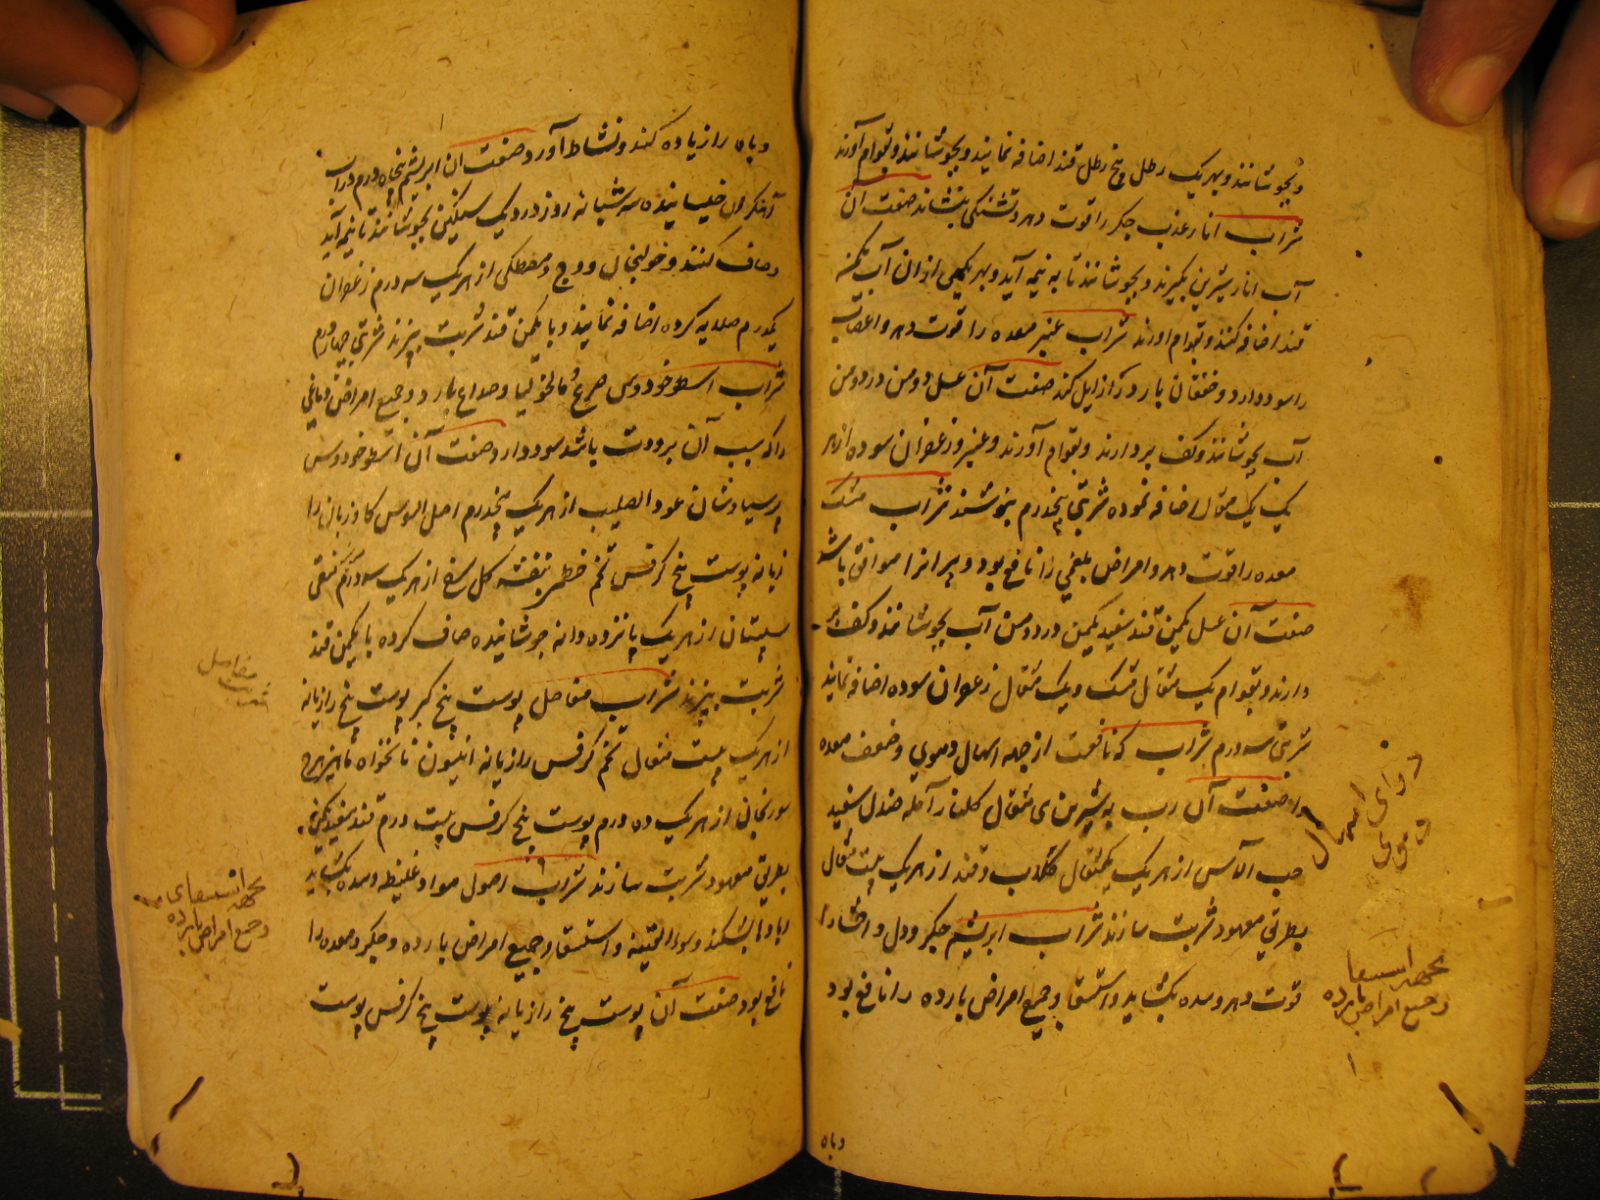 و بجوشانند و بهر یک رطل پنج رطل قند اضافه نمایند و بجوشانند و بقوام آورند
شراب انار عذب جکر را قوت دهد و تشنکی بنشاند صفت آن
آب انار شیرین بکیرند و بجوشانند تا به نیمه آید و بهر یکمن ازان آب یکمن
قند اضافه کنند و بقوام اورند شراب عنبر معده را قوت دهد و اعصاب
را سود دارد و خفقان بارد را زایل کند صفت آن عسل دو من در دو من
آب بجوشانند و کف بردارند و بقوام آورند و عنبر و زعفران سوده از هر
یک یک مثقال اضافه نموده شربتی پنجدرم بنوشند شراب مشک
معده را قوت دهد و امراض بلغمی را نافع بود و پیرانرا موافق باشد
صفت آن عسل یکمن قند سفید یکمن در دو من آب بجوشانند و کف بر
دارند و بقوام یک مثقال مشک و یک مثقال زعفران سوده اضافه نمایند
شربتی سه درم شراب که نافعت از جمله اسهال دموی و ضعف معده
را صفت آن رب به شیرین سی مثقال کلنار آمله صندل سفید
حب الآس از هر یک یکمثقال کلاب و قند از هر یک بیست مثقال
بطریق معهود شربت سازند شراب ابریشم جکر و دل و احشا را
قوت دهد و سده بکشاید و استسقا و جمیع امراض بارده را نافع بود
دوای اسهال
دموی
بجهة استسقا
و جمیع امراض بارده
و باه
و باه را زیاده کند و نشاط آورد صفت ان ابریشم پنجاه درم در اب
آهنکران خیسانیده سه شبانه روز در دیک سنکین بجوشانند تا به نیمه آید
و صاف کنند و خولنجان و وج و مصطکی از هر یک سه درم زعفران
یکدرم صلایه کرده اضافه نمایند و با یکمن قند شربت بپزند شربتی چهار درم
شراب اسطوخودوس صرع و مالخولیا و صداع بارد و جمیع امراض دماغی
را که سبب آن برودت باشد سود دارد صفت آن اسطوخودوس
پرسیاوشان عود الصلیب از هر یک پنجدرم اصل السوس کاوزبان را
زیانه پوست بیخ کرفس تخم خطمی بنفشه کل سرخ از هر یک سه درم منقی
سپستان از هر یک پانزده دانه جوشانیده صاف کرده با یکمن قند
شربت بپزند شراب مفاصل پوست بیخ کبر پوست بیخ رازیانه
از هر یک بیست مثقال تخم کرفس رازیانه انیسون نانخواه ماهیزهرج
سورنجان از هر یک ده درم پوست بیخ کرفس بیست درم قند سفید یکمن
بطریق معهود شربت سازند شراب اصول مواد غلیظ و سده بکشاید
و بادها بشکند و سوء القنیه و استسقا و جمیع امراض بارده و جکر و معده را
نافع بود صفت آن پوست بیخ رازیانه پوست بیخ کرفس پوست
شربت مفاصل
بجهة استسقای
و جمع امراض بارده